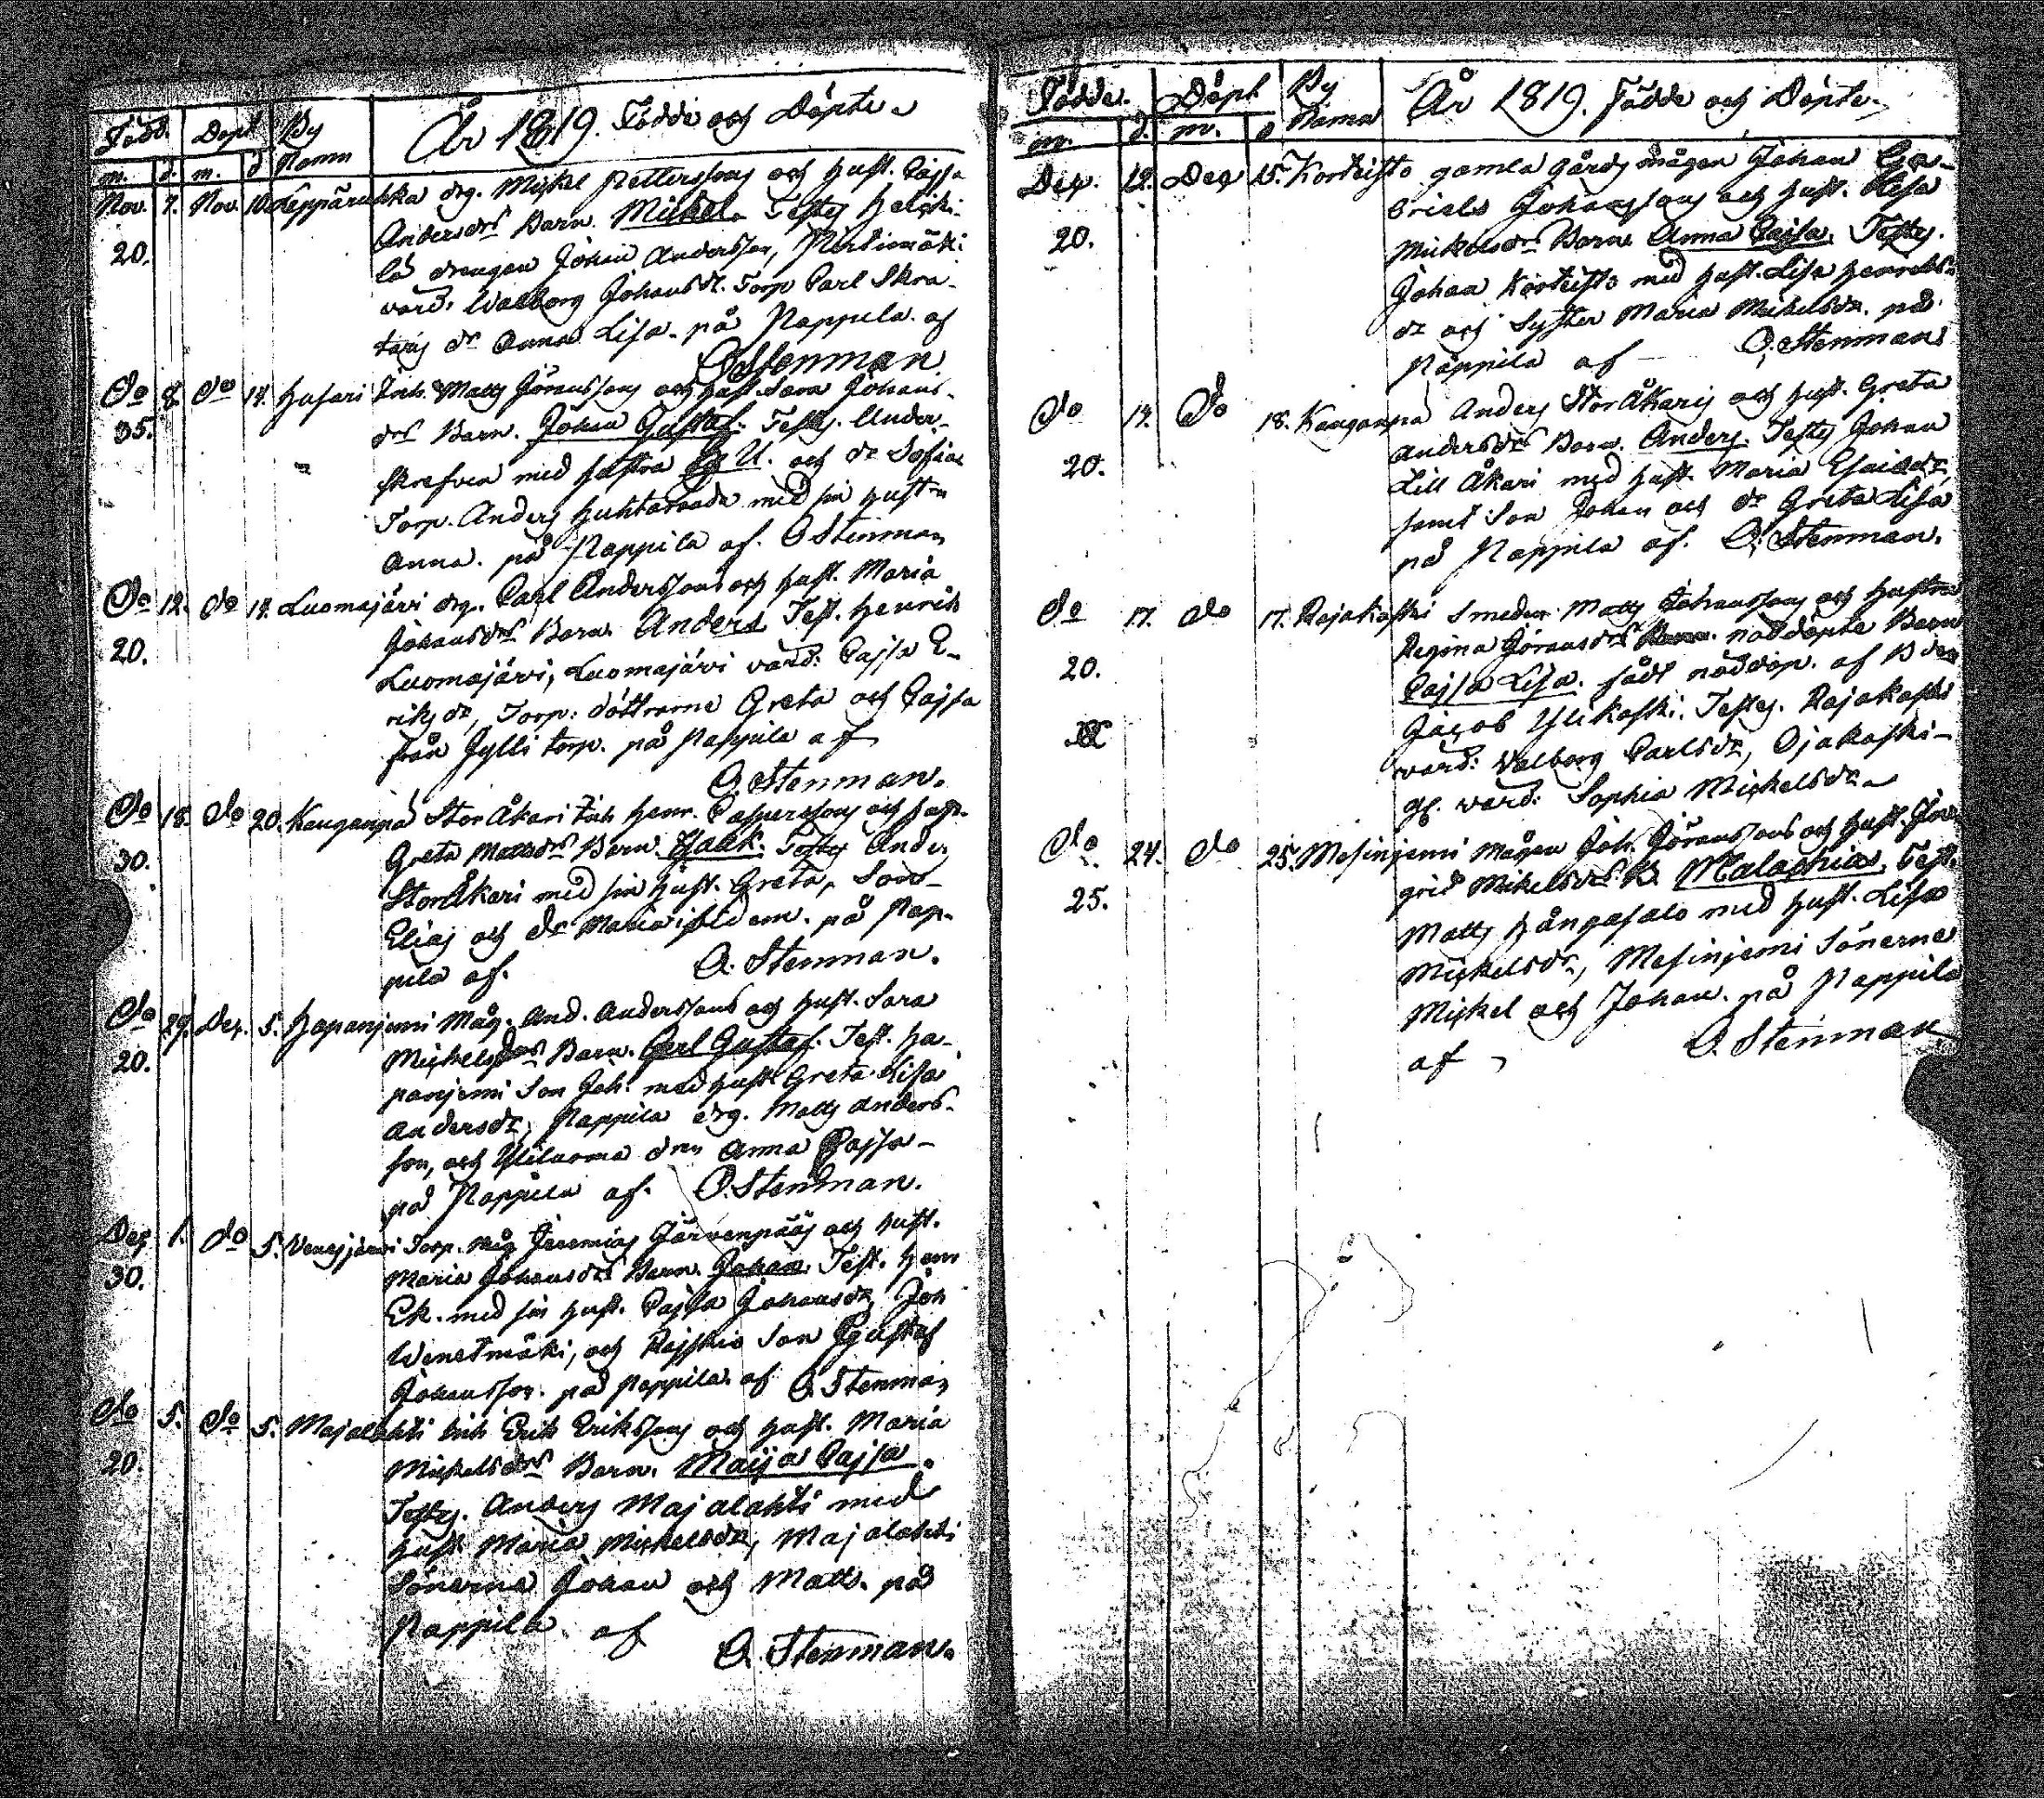 Född. Döpt By
Namn
År 1819. Födde och Döpte.
m. d. m. d
Nov. 7. Nov. 10. Leppäruhka drg. Mickel Petterssons och Hust. Cajsa
20. Andersdrs Barn. Mickel. Testes
lä drengen Johan Andersson,
värd: Walborg Johansdr. Torp Carl Skra-
tars dr Anna Lisa. på Pappila af
O Stenman.
Do 8. Do 14. Husari Inh. Matts Jöranssons och Hust Sara Johans-
35. drs Barn. Johan Gustaf. Testes. Under-
skrefven med hustru och dr Sofia
Torp. Anders Huhtarada med sin hustru
Anna. på Pappila af. O Stenman
Do 12. Do 14. Luomajärvi drg. Carl Anderssons och Hust. Maria
20. Johansdrs Barn. Anders Test. Henrik
Luomajärvi, Luomajärvi värd: Cajsa E-
riksdr, Torp: döttrarne Greta och Cajsa
från Jylli torp. på Pappila af
O. Stenman.
Do 18. Do 20. Kanganpä Stor Åkari Inh Henr. Caspersons och Hust.
30. Greta Mattsdrs Barn. Isaak. Testes Anders
StorÅkari med sin Hust. Greta, Son
Elias och dr Maria ibidem. på Pap-
pila af. O. Stenman.
Do 29. Dec. 5. Hapanjemi Måg. And. Anderssons och Hust. Sara
20. Mickelsdrs Barn. Carl Gustaf. Test. Ha-
panjemi Son Joh. med Hust. Greta Lisa
Andersdr, Pappila drg. Matts Anders-
son, och Yliluoma drn Anna Cajsa
på Pappila af. O. Stenman.
Dec 1. Do 5. Venesjärvi Torp. Måg Jeremias Järvenpääs och Hust.
30. Maria Johansdrs Barn. Johan. Test. Henr
Ek. med sin Hust. Cajsa Johansdr, Joh
Wenetmäki, och Son Gustaf
Johansson. på Pappila af O Stenman
Do 5. Do 5. Majalahti Inh Erik Erikssons och Hust. Maria
20. Mickelsdrs Barn. Maija Cajsa.
Testes. Anders Majalahti med
Hust Maria Mickelsdr, Majalahti
Sönerne Johan och Matt. på
Pappila af
O. Stenman.
Födde. Döpt By
Namn
År 1819. Födde och Döpte.
m. d. m. d
Dec. 12. Dec 15. Korteisto gamla gårds mågen Johan Ga-
20. briels Johanssons och Hust. Lisa
Mickelsdrs Barn Anna Cajsa. Testes.
Johan Korteisto med Hust. Lisa Henriks-
dr och Syster Maria Mickelsdr. på
Pappila af O. Stenman
Do 14. Do 18. Kanganpä Anders StorÅkaris och Hust. Greta
20. Andersdrs Barn. Anders. Testes Johan
Lill Åkari med Hust. Maria Esaiædr,
samt Son Johan och dr Greta Lisa
på Pappila af. O. Stenman.
Do 17. Do 17. Rajakoski Smeden Matts Johanssons och Hustru
20. Regina Göransdrs nöddöpte Barn
Cajsa Lisa. född nöddöp. af
Jacob Ylikoski. Testes. Rajakoski
värd: Walborg Carlsdr, Ojakoski
gl. värd: Sophia Mickelsdr
Do 24. Do 25. Mesinjemi Mågen Joh. Jöranssons och Hust. In-
25. grid Mikelsdrs B. Malachias. Test.
Matts Hångasalo med Hust. Lisa
Mickelsdr, Mesinjemi Sönerne
Mickel och Johan. på Pappila
af O. Stenman